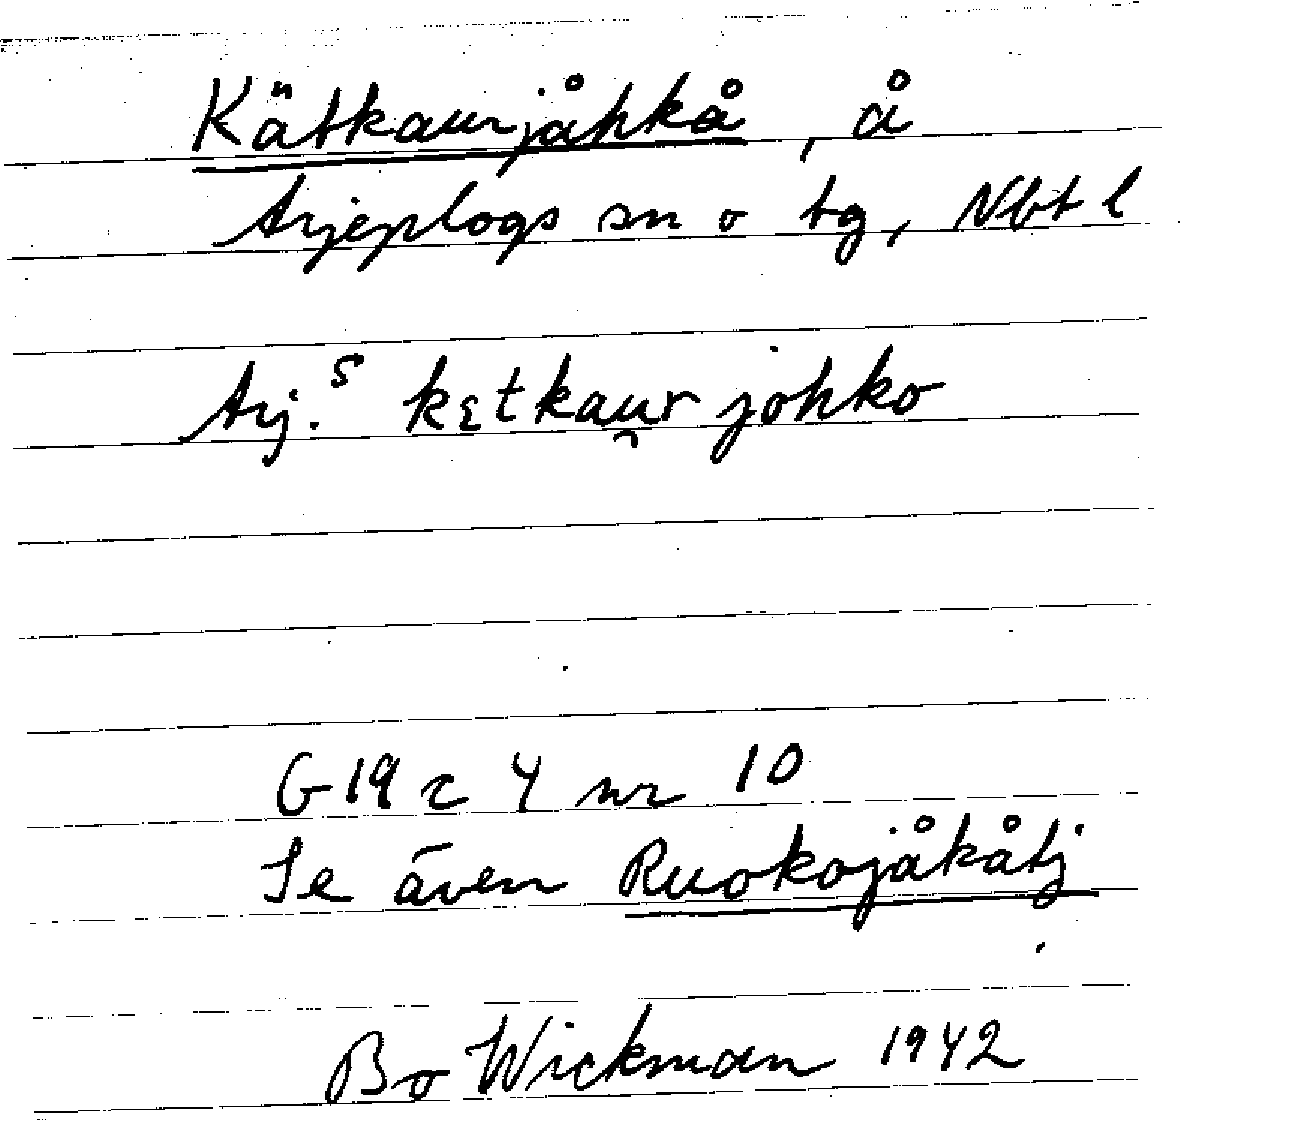 Kätkaurjåhkå, å
Arjeplogs sn o tg, Nbt l
Arj.ˢ kɛtkau̯r johko
G 19 c 4 nr 10
Se även Ruokojåkåtj
Bo Wickman 1942